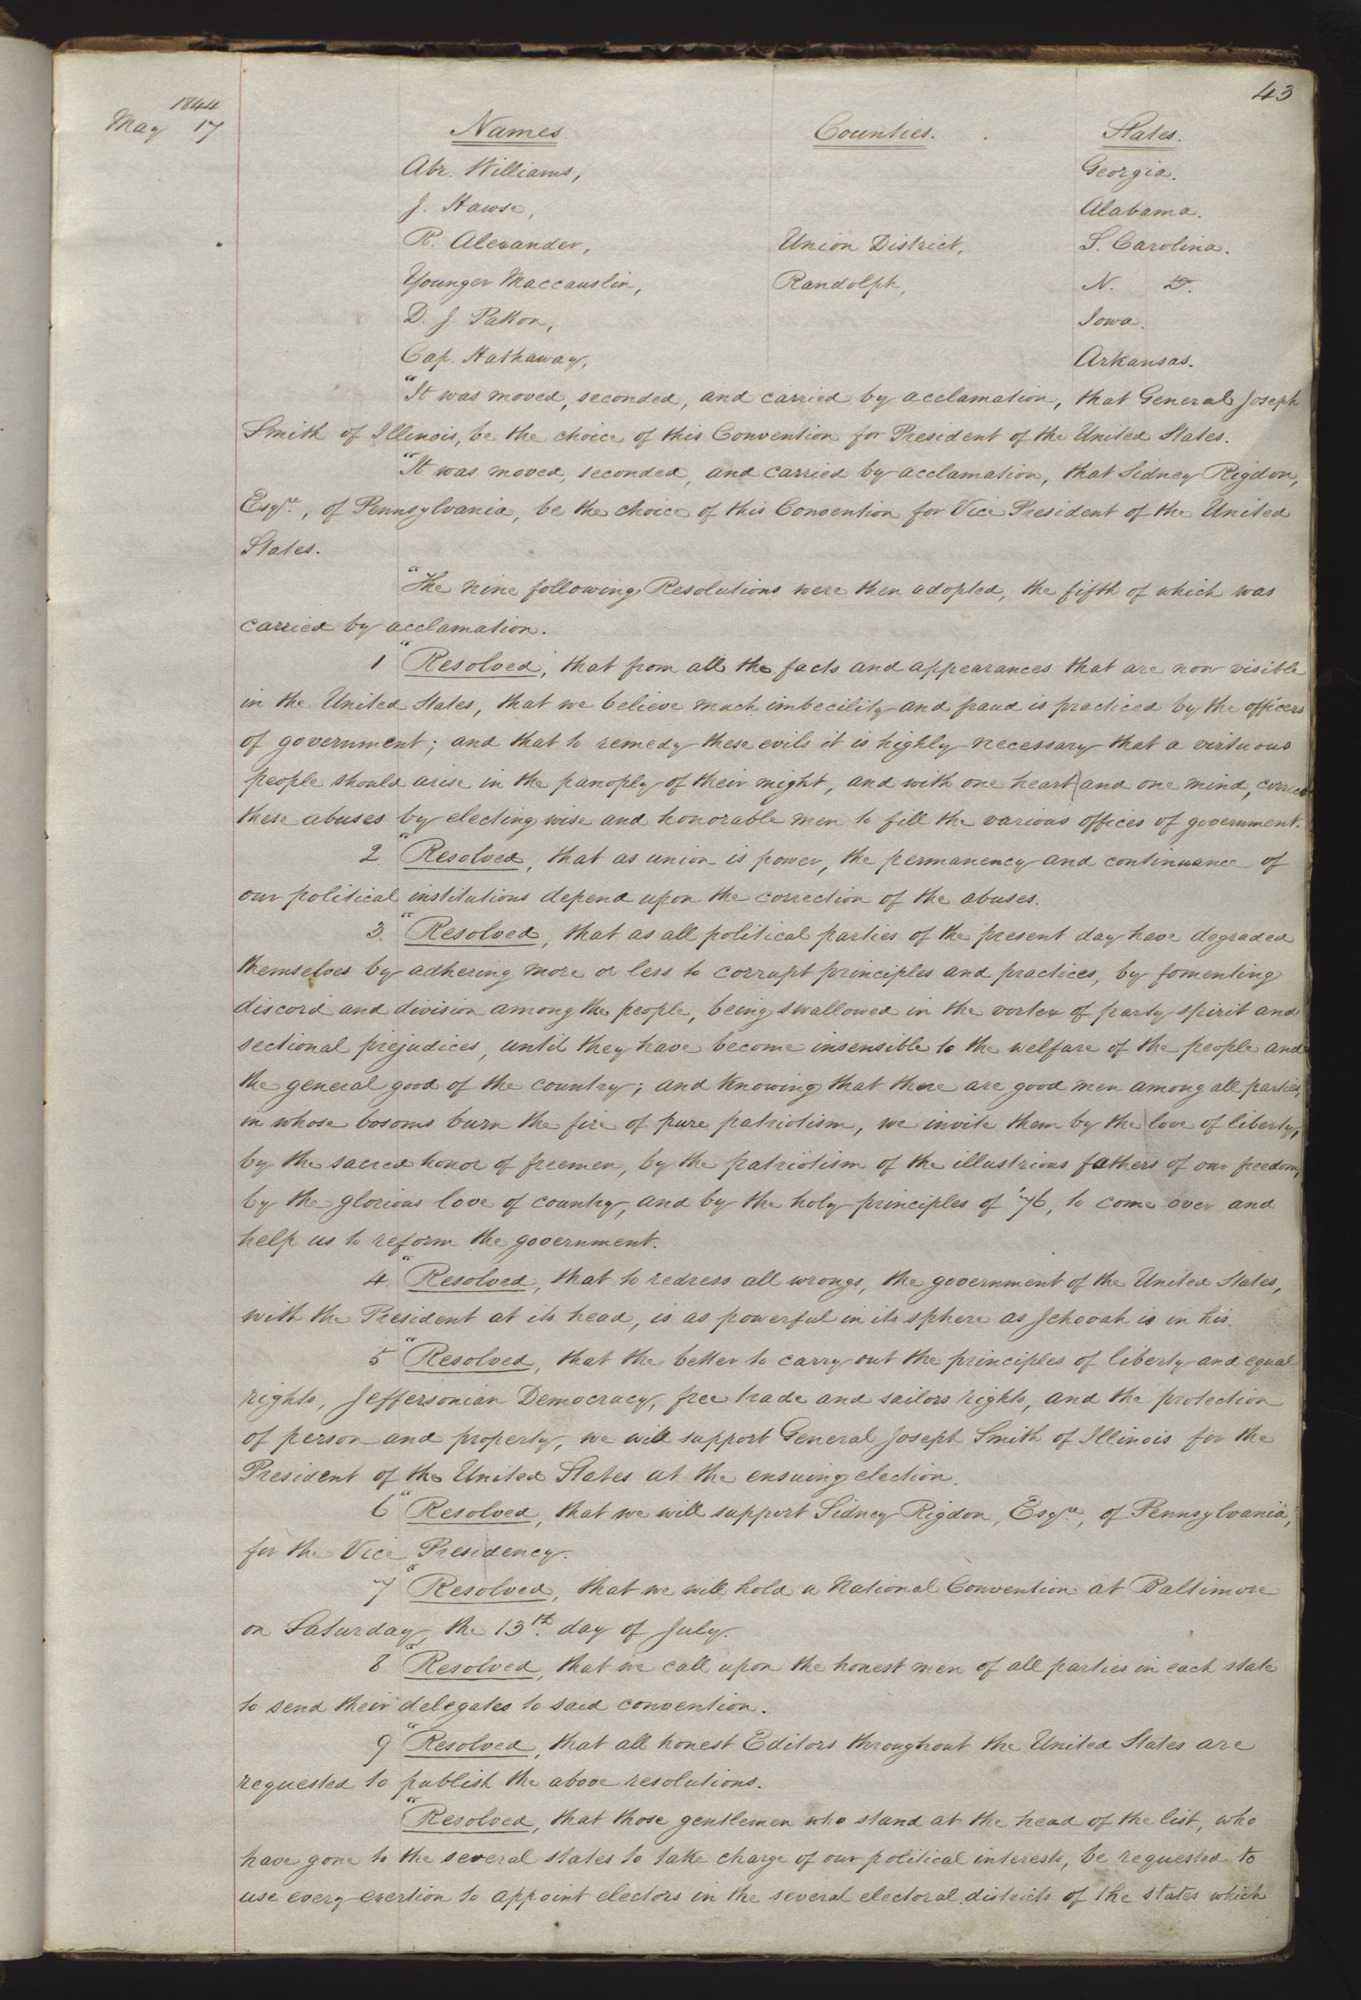 43
1844
May 17
Names. Counties. States.
Abr. Williams, Georgia.
J. Hawse, Alabama.
R. Alexander, Union District, S. Carolina.
Younger Maccauslin, Randolph, N. Do.
D. J. Patton, Iowa.
Cap. Hathaway, Arkansas.
"It was moved, seconded, and carried by acclamation, that General Joseph
Smith of Illinois, be the choice of this Convention for President of the United States.
"It was moved, seconded, and carried by acclamation, that Sidney Rigdon,
Esqre., of Pennsylvania, be the choice of this Convention for Vice President of the United
States.
"The nine following Resolutions were then adopted, the fifth of which was
carried by acclamation.
1 "Resolved, that from all the facts and appearances that are now visible
in the United States, that we believe much imbecility and fraud is practiced by the officers
of government; and that to remedy these evils it is highly necessary that a virtuous
people should arise in the panoply of their might, and with one heart and one mind, correct
these abuses by electing wise and honorable men to fill the various offices of government.
2 "Resolved, that as union is power, the permanency and continuance of
our political institutions depend upon the correction of the abuses.
3. "Resolved, that as all political parties of the present day have degraded
themselves by adhering more or less to corrupt principles and practices, by fomenting
discord and division among the people, being swallowed in the vortex of party spirit and
sectional prejudices, until they have become insensible to the welfare of the people and
the general good of the country; and knowing that there are good men among all parties,
in whose bosoms burn the fire of pure patriotism, we invite them by the love of liberty,
by the sacred honor of freemen, by the patriotism of the illustrious fathers of our freedom,
by the glorious love of country, and by the holy principles of '76, to come over and
help us to reform the government.
4. "Resolved, that to redress all wrongs, the government of the United States,
with the President at its head, is as powerful in its sphere as Jehovah is in his.
5 "Resolved, that the better to carry out the principles of liberty and equal
rights, Jeffersonian Democracy, free trade and sailors rights, and the protection
of person and property, we will support General Joseph Smith of Illinois for the
President of the United States at the ensuing election.
6 "Resolved, that we will support Sidney Rigdon, Esqre., of Pennsylvania,
for the Vice Presidency.
7 "Resolved, that we will hold a National Convention at Baltimore
on Saturday, the 13th. day of July.
8 "Resolved, that we call upon the honest men of all parties in each state
to send their delegates to said convention.
9 "Resolved, that all honest Editors throughout the United States are
requested to publish the above resolutions.
"Resolved, that those gentlemen who stand at the head of the list, who
have gone to the several states to take charge of our political interests, be requested to
use every exertion to appoint electors in the several electoral districts of the states which